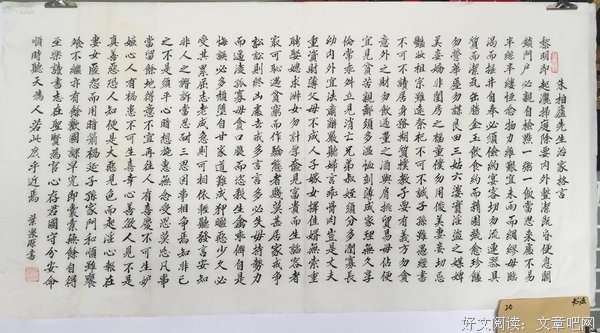 朱柏廬先生治家格言
黎明即起灑掃庭除要内外整潔既昏便息關
鎖門户必親自檢點一粥一飯當思來處不易
半絲半縷恒念物力維艱宜未雨而綢繆毋臨
渴而掘井自奉必須儉約宴客切勿流連器具
質而潔瓦缶勝金玉飲食約而精園蔬愈珍饈
勿營華屋勿謀良田三姑六婆實淫盜之媒婢
美妾嬌非閨房之福童僕勿用俊美妻妾切忌
艷妝祖宗雖遠祭祀不可不誠子孫雖愚經書
不可不讀居身務期質樸教子要有義方勿貪
意外之財勿飲過量之酒與肩挑貿易毋佔便
宜見貧苦親鄰須多温恤刻薄成家理無久享
倫常乖舛立見消亡兄弟叔姪須分多潤寡長
幼内外宜法肅辭嚴聽婦言乖骨肉豈是丈夫
重資財薄父母不成人子嫁女擇佳婿無索重
聘娶媳求淑女勿計厚奩見富貴而生諂容者
最可恥遇貧窮而作驕態者賤莫甚居家戒爭
訟訟則終凶處世戒多言言多必失毋恃勢力
而凌逼孤寡毋貪口腹而恣殺生禽乖僻自是
悔誤必多頹墮自甘家道難成狎暱惡少久必
受其累屈志老成急則可相依輕聽發言安知
非人之譖訴當忍耐三思因事相爭焉知非己
之不是須平心暗想施惠無念受恩莫忘凡事
當留餘地得意不宜再往人有喜慶不可生妒
嫉心人有禍患不可生喜幸心善欲人見不是
真善惡恐人知便是大惡見色而起淫心報在
妻女匿怨而用暗箭禍延子孫家門和順雖饔
飧不繼亦有餘歡國課早完即囊橐無餘自得
至樂讀書志在聖賢為官心存君國守分安命
順時聽天為人若此庶乎近焉 書
好文阅读：文章吧网